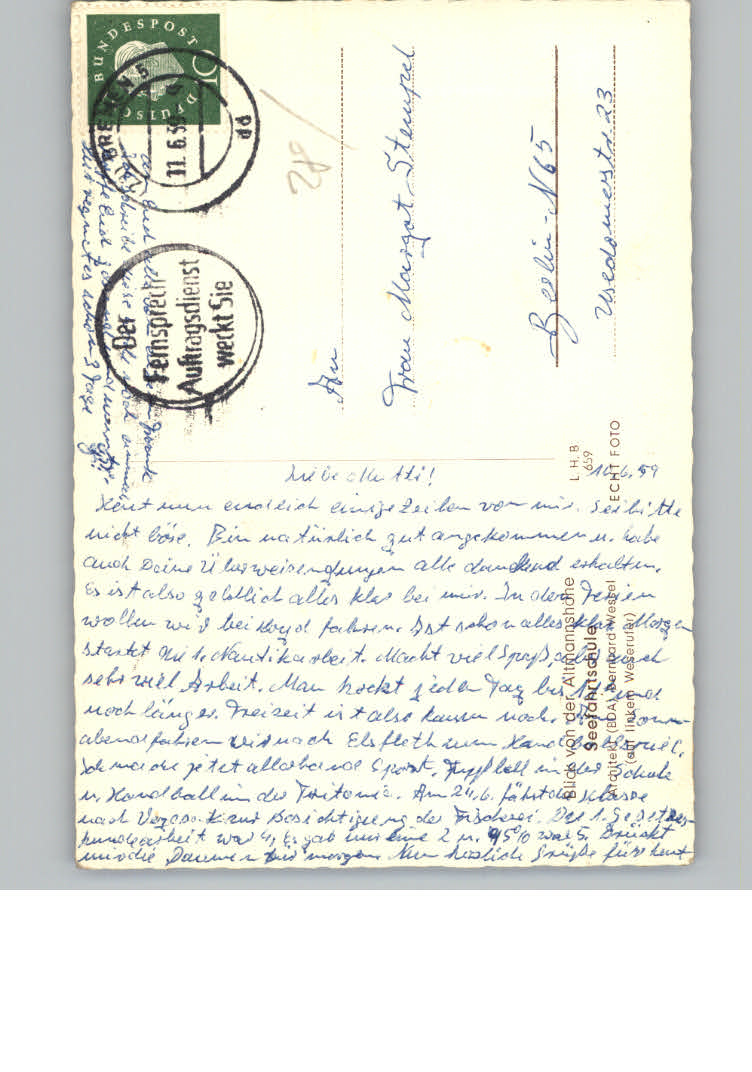 DEUTSCHE
BUNDESPOST
10
BREMEN 5
11.6.59
dd
Der
Fernsprech-
Auftragsdienst
weckt Sie
28/
An
Frau Margot Stempel
Berlin-N65
Usedomerstr. 23
L. H. B.
659
ECHT FOTO
Blick von der Altmannshöhe
Seefahrtschule
Architekt (BDA) Bernhard Wessel
(auf linkem Weserufer)
10.6.59
Liebe Mutti!
Heut nun endlich einige Zeilen von mir. Sei bitte
nicht böse. Bin natürlich gut angekommen u. habe
auch Deine Überweisungen alle dankend erhalten.
Es ist also geldlich alles klar bei mir. In den Ferien
wollen wir bei Lloyd fahren. Ist schon alles klar. Morgen
startet die 1. Nautikarbeit. Macht viel Spaß aber auch
sehr viel Arbeit. Man hockt jeden Tag bis und
noch länger. Freizeit ist also kaum noch. Sonn-
abend fahren wir nach Elsfleth zum Handballspiel.
Ich mache jetzt allerhand Sport. in der Schule
u. Handball in der Tritonia. Am 24.6. fährt die Klasse
nach zur Besichtigung der Fischerei. Die 1. Gesetzes-
kundearbeit war 4, Es gab nur eine 2 u. 95% war 5. Drückt
mir die Daumen für morgen. Nun herzliche Grüße fürs heut
an Euch alle
schreibe
Euch
Hier regnet es schon 3 Tage